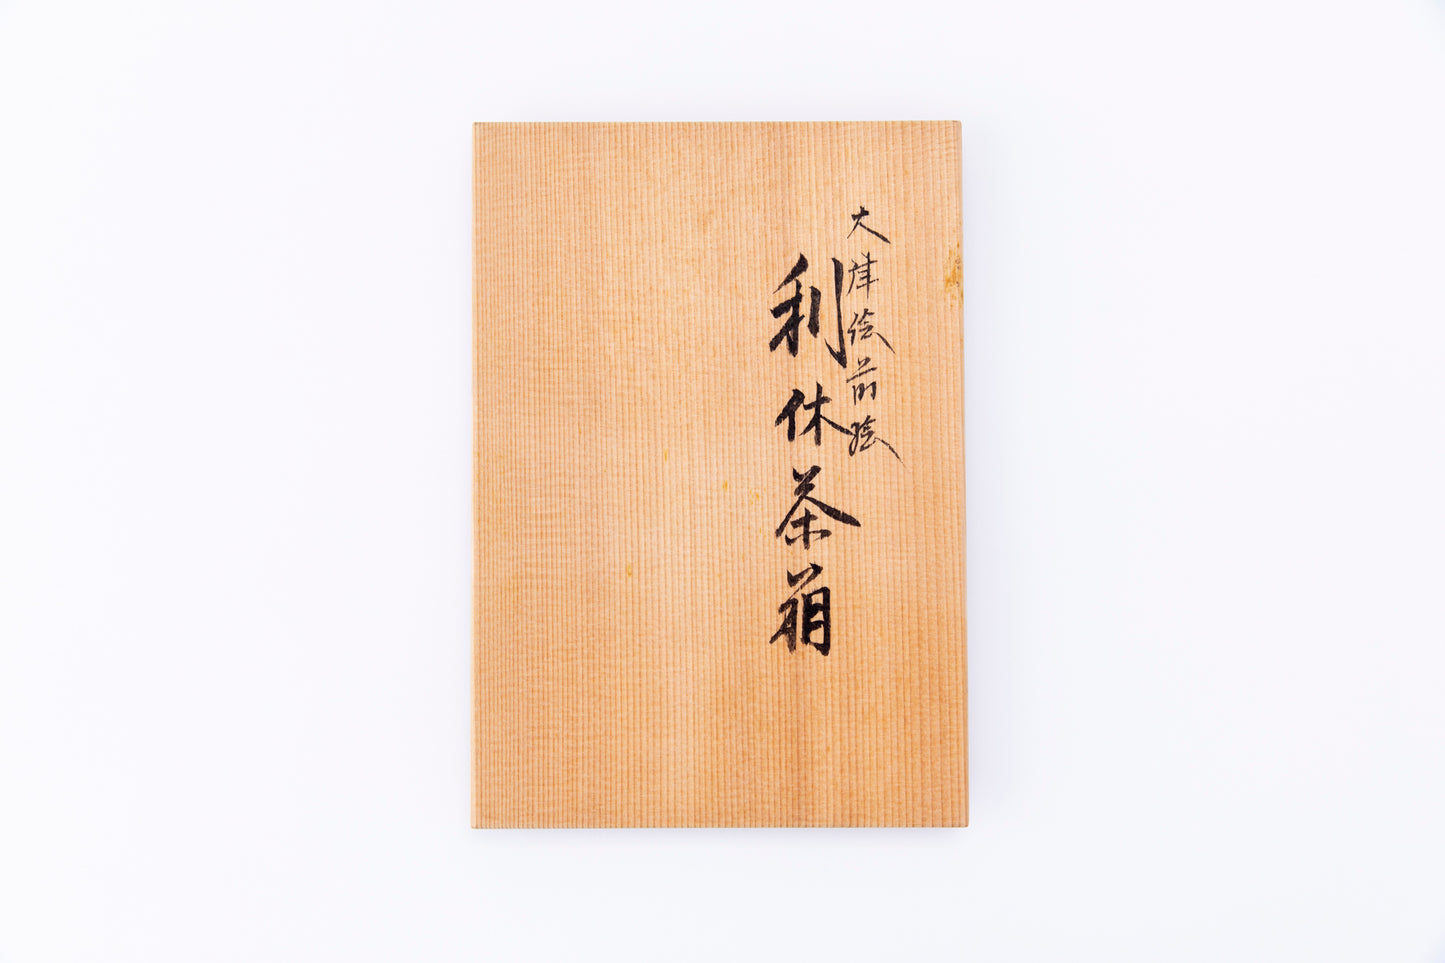 大津絵蒔絵
利休茶箱